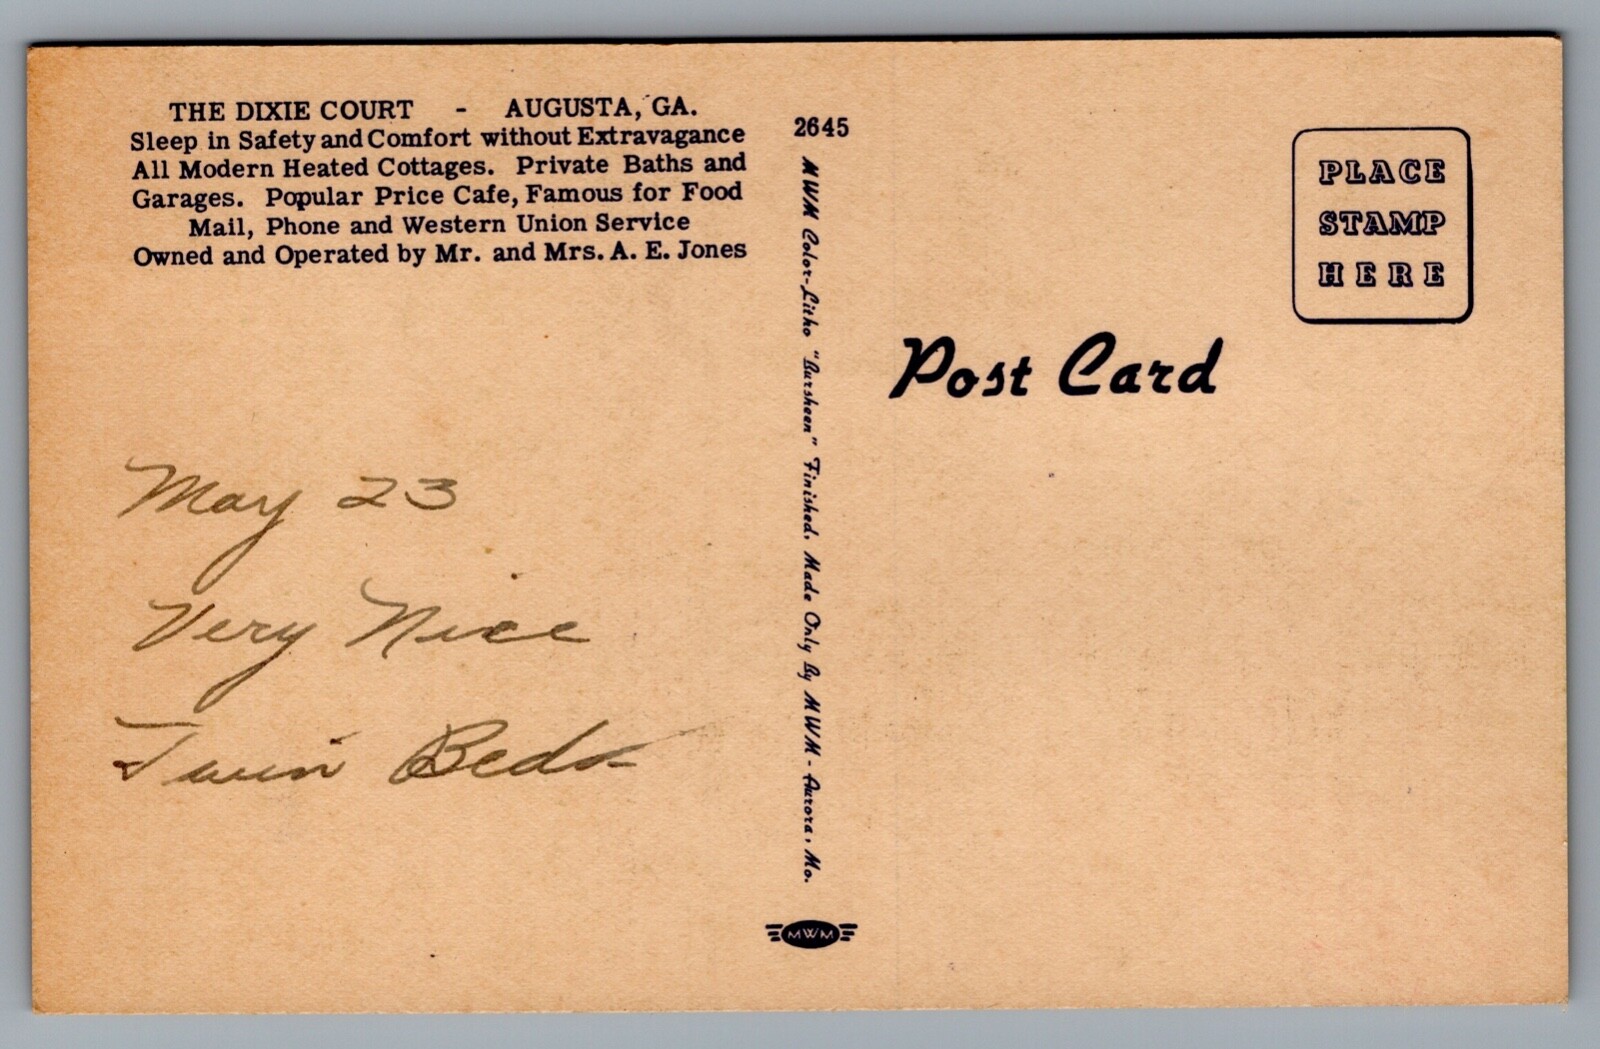 THE DIXIE COURT - AUGUSTA, GA.
Sleep in Safety and Comfort without Extravagance
All Modern Heated Cottages. Private Baths and
Garages. Popular Price Cafe, Famous for Food
Mail, Phone and Western Union Service
Owned and Operated by Mr. and Mrs. A. E. Jones
May 23
Very Nice
Twin Beds
2645
MWM Color-Litho "Bursheen" Finished. Made Only By MWM - Aurora, Mo.
MWM
PLACE
STAMP
HERE
Post Card